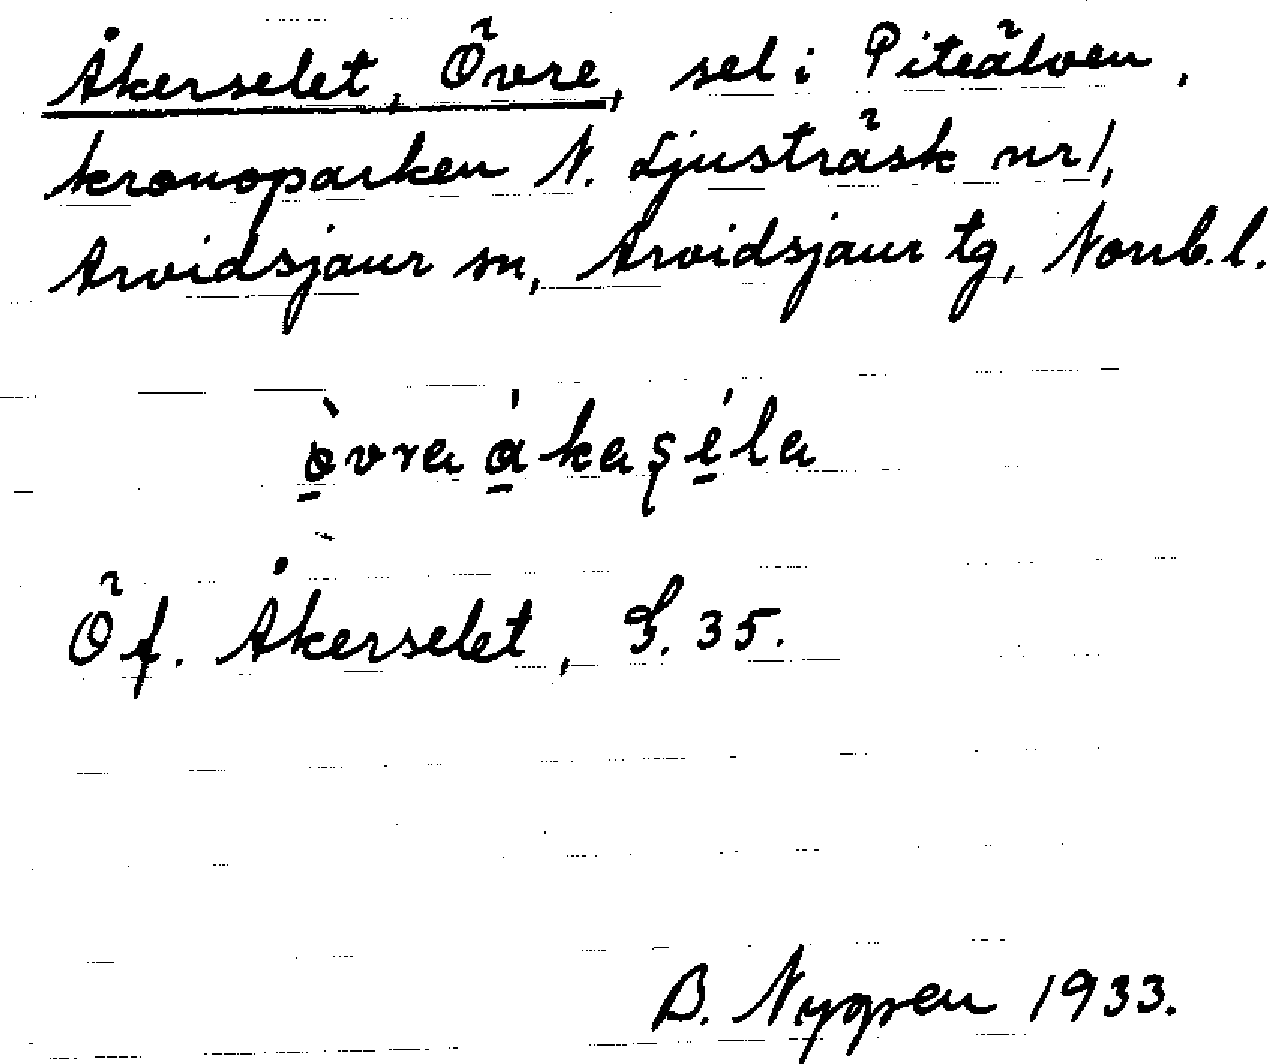 Åkerselet, Övre, sel i Piteälven,
kronoparken N. Ljusträsk nr 1,
Arvidsjaur sn, Arvidsjaur tg, Norrb. l.
òvra ákaşéla
Öf. Åkerselet, S. 35.
B. Nygren 1933.